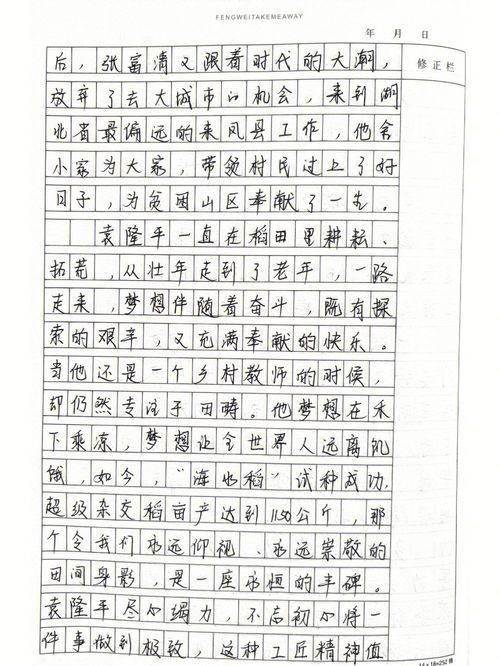 FENGWEITAKEMEAWAY
年 月 日
修正栏
后，张富清又跟着时代的大潮，
放弃了去大城市的机会，来到湖
北省最偏远的来凤县工作，他舍
小家为大家，带领村民过上了好
日子，为贫困山区奉献了一生。
袁隆平一直在稻田里耕耘、
拓荒，从壮年走到了老年，一路
走来，梦想伴随着奋斗，既有探
索的艰辛，又充满奉献的快乐。
当他还是一个乡村教师的时候，
却仍然专注于田畴。他梦想在禾
下乘凉，梦想让全世界人远离饥
饿，如今，“海水稻”试种成功，
超级杂交稻亩产达到1150公斤，那
个令我们永远仰视、永远崇敬的
田间身影，是一座永恒的丰碑。
袁隆平尽心竭力，不忘初心将一
件事做到极致，这种工匠精神值
14×18=252格